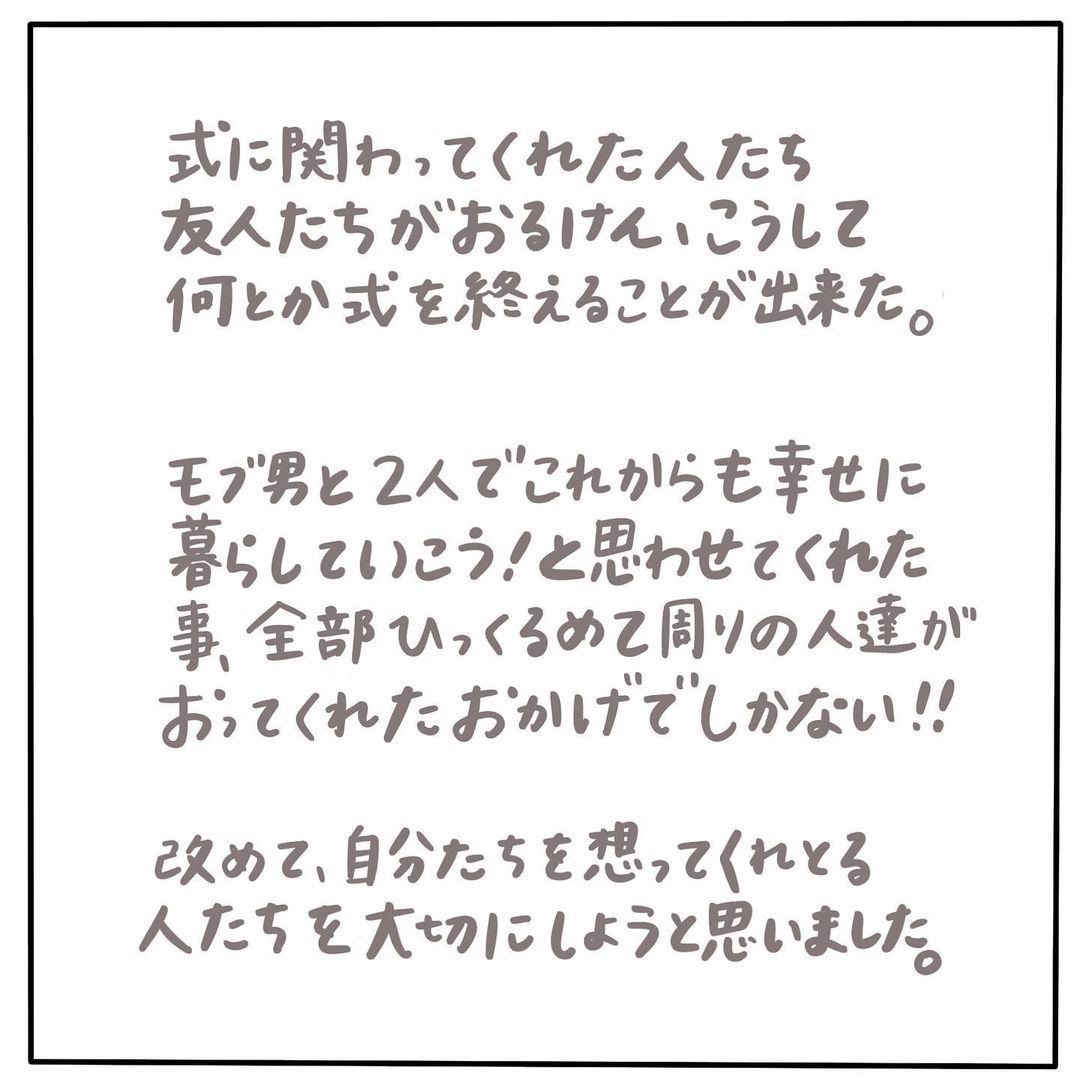 式に関わってくれた人たち
友人たちがおるけん、こうして
何とか式を終えることが出来た。
モブ男と2人でこれからも幸せに
暮らしていこう!と思わせてくれた
事、全部ひっくるめて周りの人達が
おってくれたおかげでしかない!!
改めて、自分たちを想ってくれとる
人たちを大切にしようと思いました。